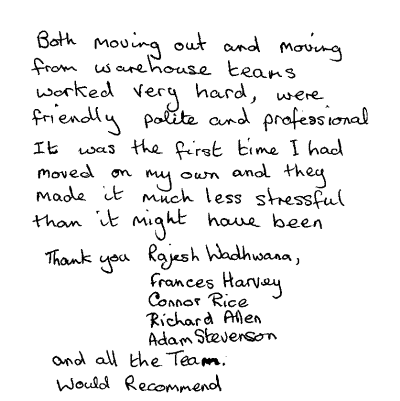 Both moving out and moving
from warehouse teams
worked very hard, were
friendly polite and professional
It was the first time I had
moved on my own and they
made it much less stressful
than it might have been
Thank you Rajesh Wadhwana,
Frances Harvey
Connor Rice
Richard Allen
Adam Stevenson
and all the Team.
Would Recommend